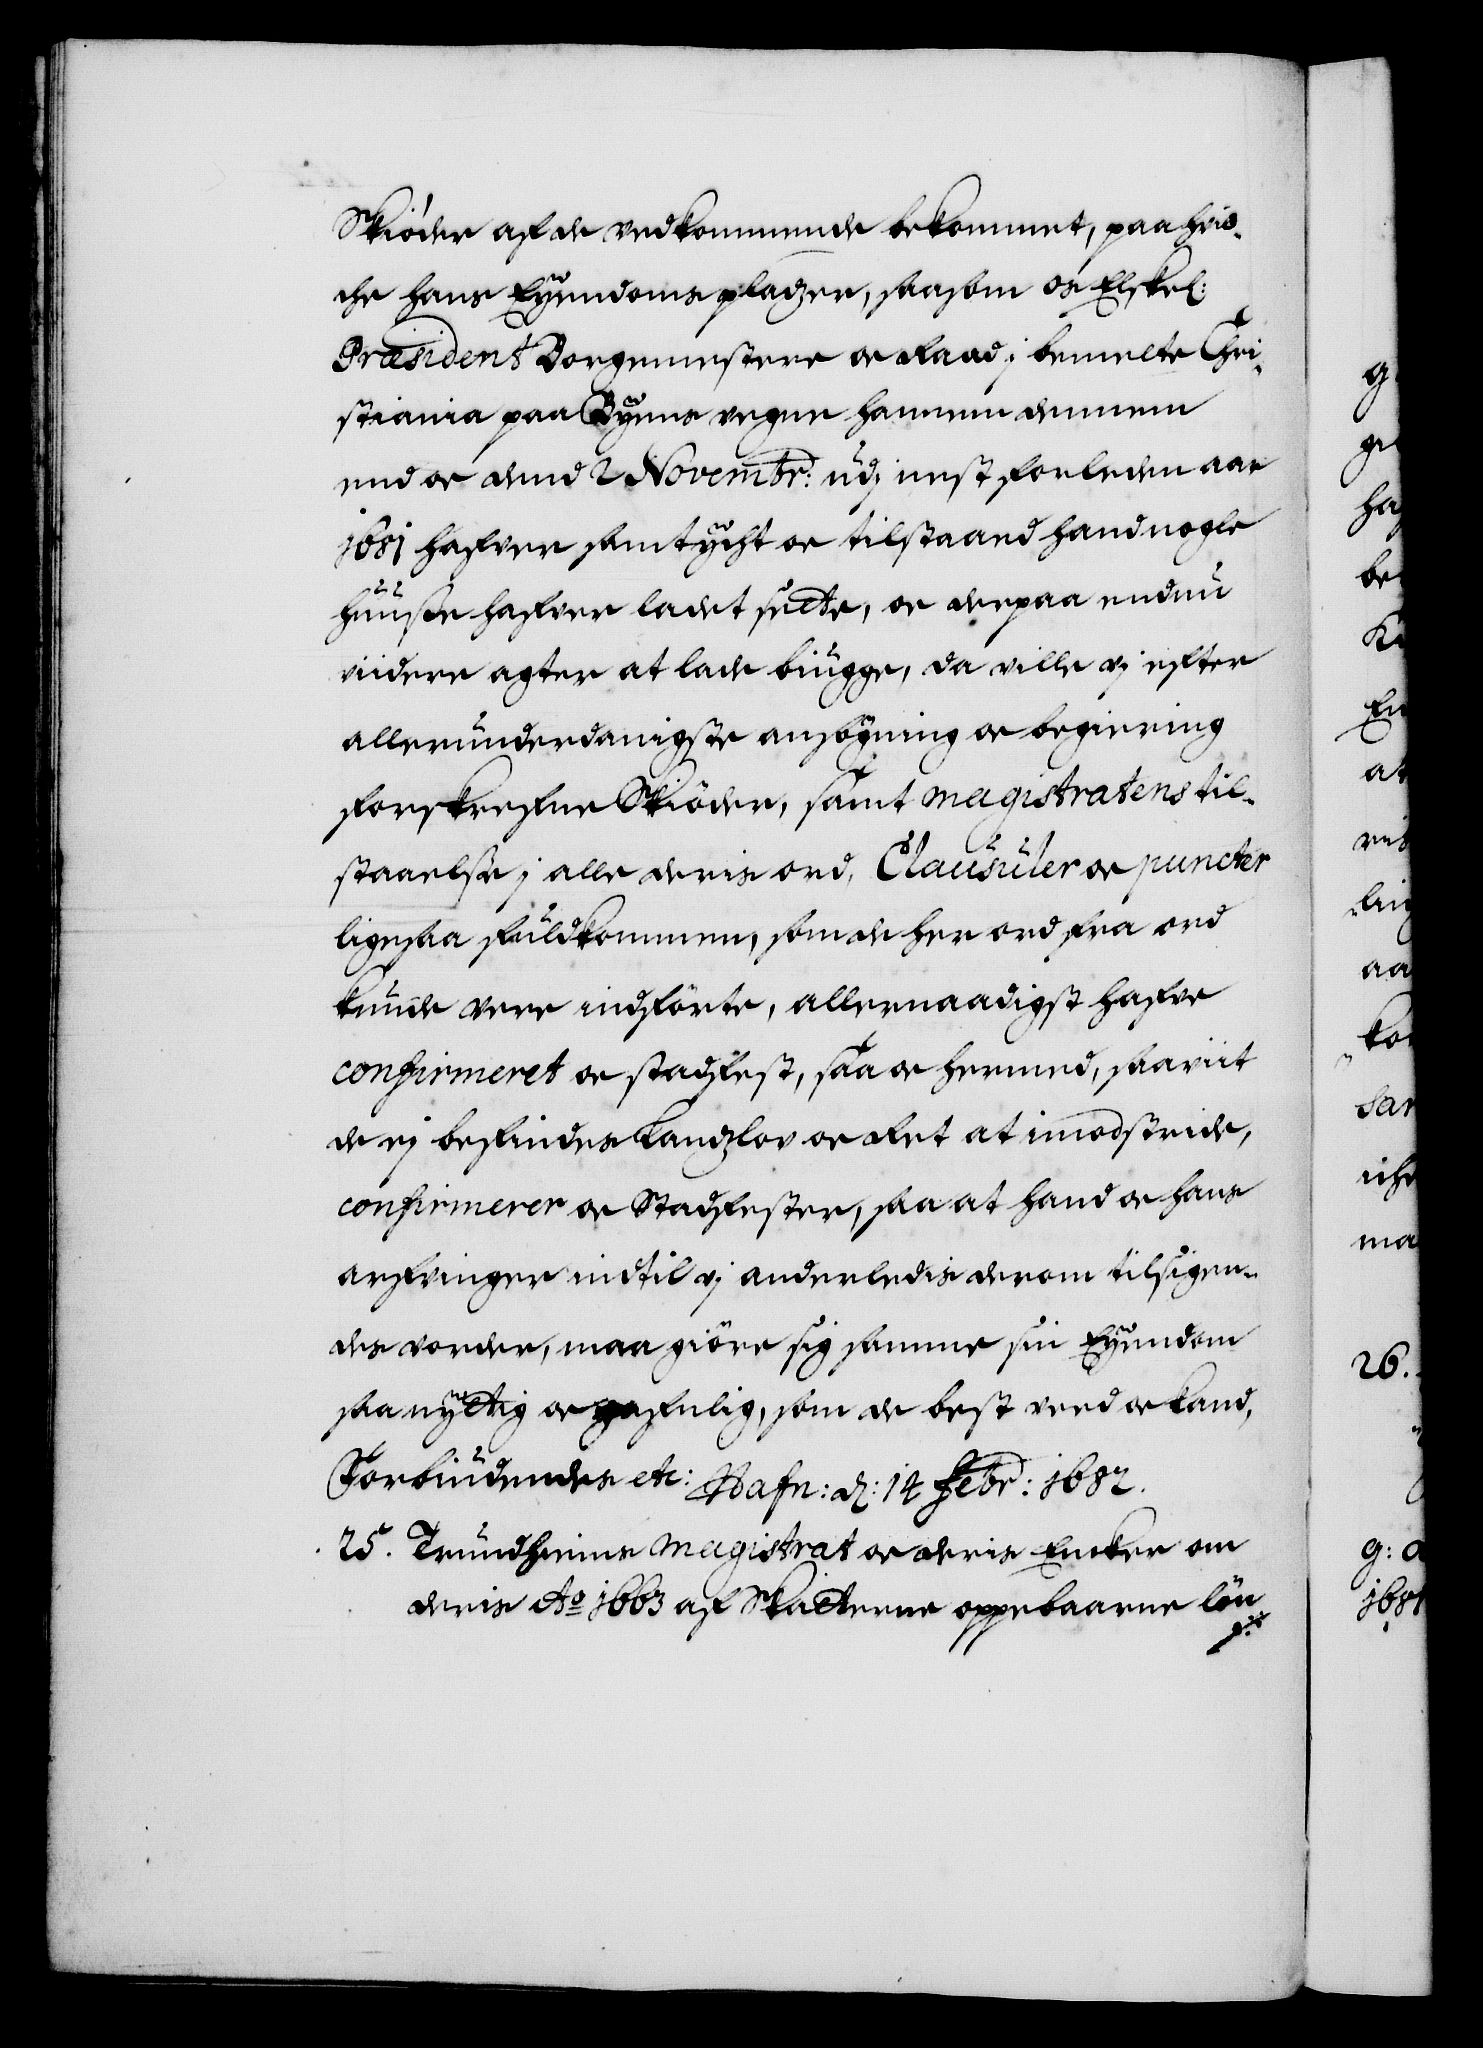 Skiøder af de vedkommende bekommet, paa hvil-
che hans Eyendoms pladzer, saasom os Elskel:
Præsident Borgemestere oc Raad j bemelte Chri-
stiania paa Byens vegne hannem dennem
end oc dend 2 Novembr: udj nest forleden aar
1681 hafver samtycht oc tilstaaed hand nogle
huuse hafver ladet sette, oc derpaa endnu
viidere agter at lade biugge, da ville vj efter
allerunderdanigste ansøgning oc begiering
forskrefne Skiøder, samt magistratens til-
staaelse j alle deris ord, Clausuler oc puncter
ligesaa fuldkommen, som de her ord fra ord
kunde vere indførte, allernaadigst hafve
confirmeret oc stadfest, saa oc hermed, saaviit
de ej befindes Landzlov oc Ret at imodstride,
confirmerer oc Stadfester, saa at hand oc hans
arfvinger indtil vj anderledis derom tilsigen-
des vorder, maa giøre sig samme sin Eyendom
saa nyttig oc gafnlig, som de best veed oc kand,
Forbiudendes etc: Hafn: d: 14 Febr: 1682.
25. Trundhiems magistrat oc deris Encker om
deris Ao 1663 af Skatterne oppebaarne løn
26.